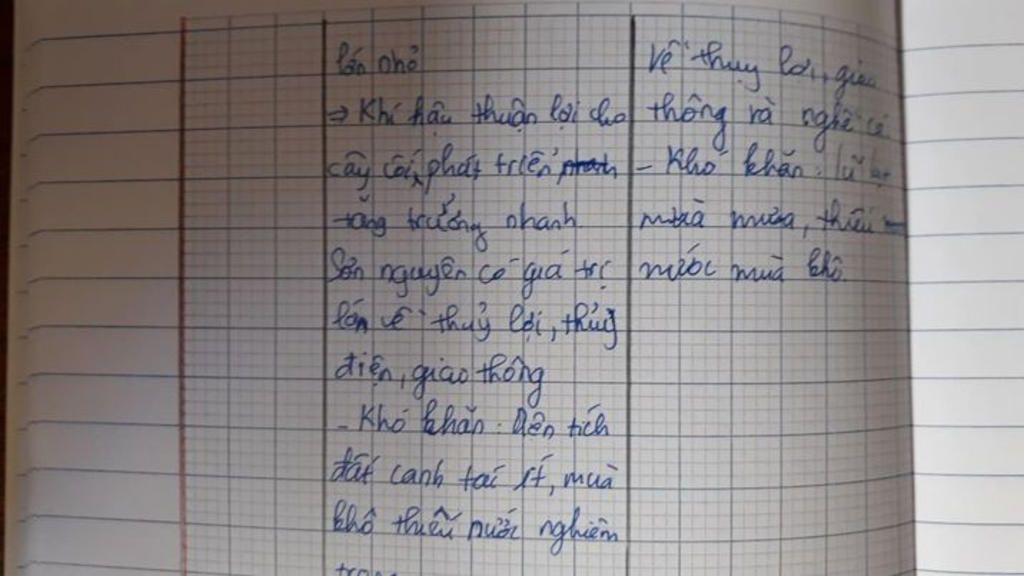 lớn nhỏ
→ Khí hậu thuận lợi cho
cây cối phát triển
tăng trưởng nhanh
Sơn nguyên có giá trị
lớn về thuỷ lợi, thủy
điện, giao thông
- Khó khăn: Diện tích
đất canh tác ít, mùa
khô thiếu nước nghiêm
về thuỵ lợi, giao
thông và nghề cá
- Khó khăn: lũ lụt
mùa mưa, thiếu
nước mùa khô.